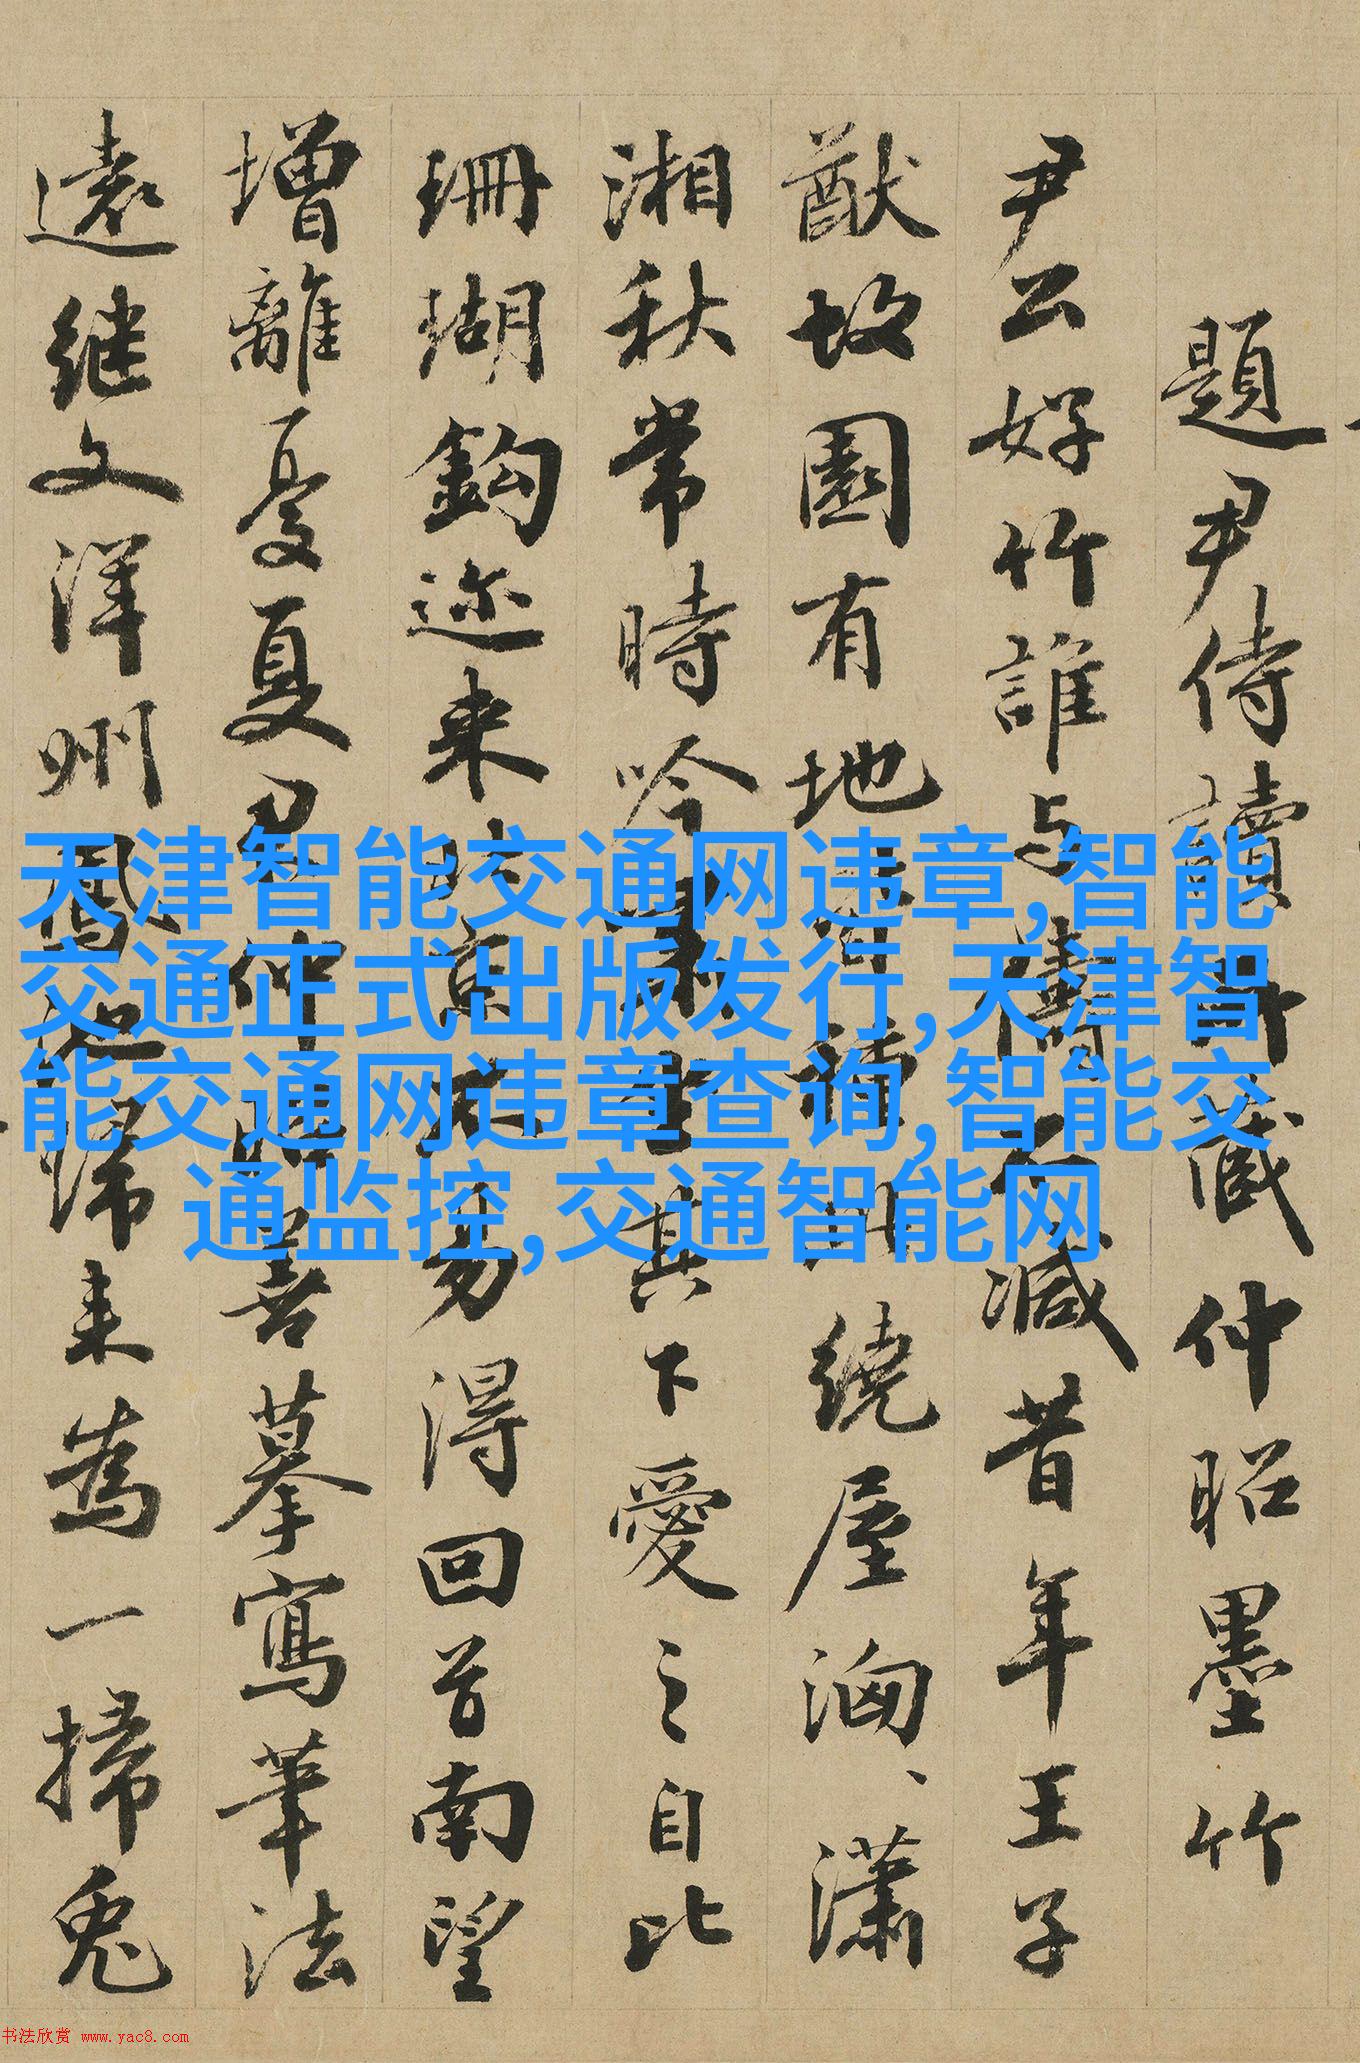 題尹侍讀所藏仲昭墨竹
尹公好竹誰与儔不減昔年王子
猷故園有地繞屋洶、瀟
湘秋常時吟其下愛之自比
珊瑚鈎迩来京不易得回首南望
增離憂夏君仲昭善摹寫筆法
遠继文洋州鳳池歸来為一掃兔
天津智能交通网违章,智能
交通正式出版发行,天津智
能交通网违章查询,智能交
通监控,交通智能网
书法欣赏 www.yac8.com